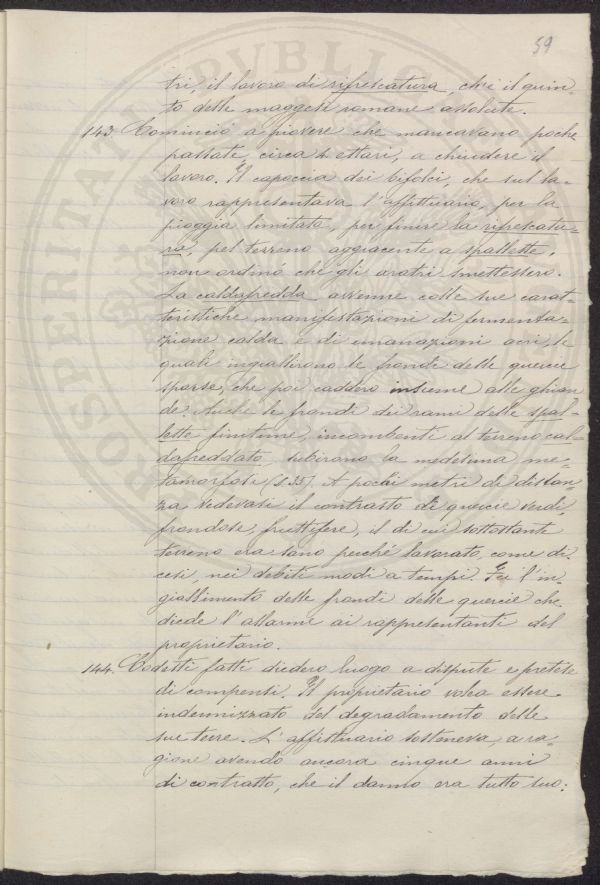 59
tri, il lavoro di rifrescatura, ch'è il quin-
to delle maggesi romane assolute.
143. Cominciò a piovere che mancavano poche
passate, circa 4 ettari, a chiudere il
lavoro. Il capoccia dei bifolci, che sul la-
voro rappresentava l'affittuario, per la
pioggia limitata, per finire la rifrescatu-
ra, pel terreno aggiacente a spallette,
non ordinò che gli aratri smettessero.
La caldafredda avvenne colle sue carat-
teristiche manifestazioni di fermenta-
zione calda e di emanazioni acri, le
quali ingiallirono le frondi delle quercie
sparse, che poi caddero insieme alle ghian
de. Anche le frondi dei rami delle spal-
lette finitime, incombenti al terreno cal-
dafreddato, subirono la medesima me-
tamorfosi (§.35). A pochi metri di distan-
za vedevasi il contrasto di quercie verdi,
frondose, fruttifere, il di cui sottostante
terreno era sano perchè lavorato, come di-
cesi, nei debiti modi a tempi. Fu l'in-
giallimento delle frondi delle quercie che
diede l'allarme ai rappresentanti del
proprietario.
144. Codesti fatti diedero luogo a dispute e pretese
di compensi. Il proprietario volea essere
indennizzato del degradamento delle
sue terre. L'affittuario sosteneva, a ra-
gione avendo ancora cinque anni
di contratto, che il danno era tutto suo:
PROSPERITATI PVBLICAE